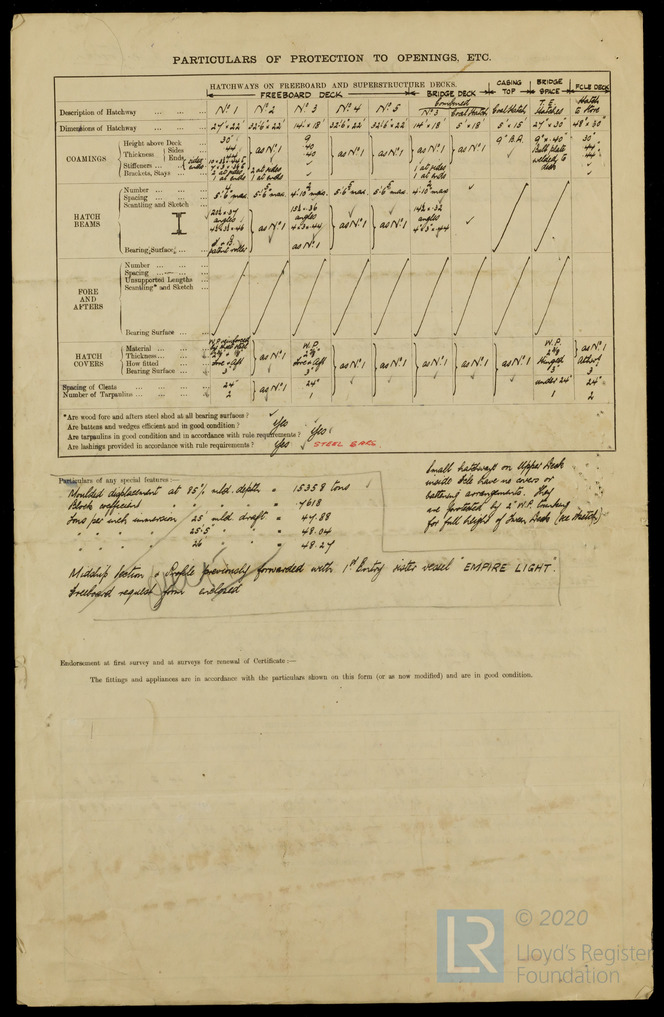 PARTICULARS OF PROTECTION TO OPENINGS, ETC.
HATCHWAYS ON FREEBOARD AND SUPERSTRUCTURE DECKS.
FREEBOARD DECK
BRIDGE DECK
CASING TOP
BRIDGE SPACE
FCLE DECK
Description of Hatchway ... Nº 1 Nº 2 Nº 3 Nº 4 Nº 5 Combined Nº 3 Coal Hatch Coal Hatch T.E. Hatches Hatch to Store
Dimensions of Hatchway ... 27' × 22' 32'6" × 22' 14' × 18' 32'6" × 22' 32'6" × 22' 14' × 18' 5' × 18' 5' × 15' 27" × 30" 48" × 30"
COAMINGS
Height above Deck ... 30" 9 9" B.A. 9" × .40 30"
Thickness Sides .44 .40 Bulb plate .44
Ends .44 .40 welded to deck .44
Stiffeners ... sides ends
Brackets, Stays ... 2 at sides 1 at ends 2 at sides 1 at ends 1 at sides 1 at ends
as Nº 1 as Nº 1 as Nº 1 as Nº 1 as Nº 1
HATCH BEAMS
Number ... 4 5 2 5 5 2
Spacing ... 5'.6 max. 5'.6 max. 4'.10 max. 5'.6 max. 5'.6 max. 4'.10 max.
Scantling and Sketch
angles angles angles
as Nº 1 as Nº 1 as Nº 1
Bearing Surface ... as Nº 1
FORE AND AFTERS
Number ...
Spacing ...
Unsupported Lengths ...
Scantling* and Sketch ...
Bearing Surface ...
HATCH COVERS
Material ... W.P. W.P.
Thickness ... 2⅜" 2⅜"
How fitted ... Fore & Aft Fore & Aft Hinged
Bearing Surface ... 3" 3" 3" 3
as Nº 1 as Nº 1 as Nº 1 as Nº 1 as Nº 1 as Nº 1 as Nº 1
Spacing of Cleats ... 24" as Nº 1 24" under 24" 24"
Number of Tarpaulins ... 2 1 1 2
*Are wood fore and afters steel shod at all bearing surfaces?
Are battens and wedges efficient and in good condition? Yes
Are tarpaulins in good condition and in accordance with rule requirements? Yes
Are lashings provided in accordance with rule requirements? Yes STEEL BARS.
Particulars of any special features :—
Moulded displacement at 85% mld. depth = 15358 tons
Block coefficient " " " = .7618
Tons per inch immersion 25' mld. draft = 47.88
" " " 25'.5" " " = 48.04
" " " 26' " " = 48.27
Small hatchways on Upper Deck
inside Fcle have no covers or
battening arrangements. They
are protected by 2" W.P. trunking
for full height of Tween Deck (see sketch)
Midship Section & Profile previously forwarded with 1st Entry sister vessel "EMPIRE LIGHT".
Freeboard request form enclosed
Endorsement at first survey and at surveys for renewal of Certificate :—
The fittings and appliances are in accordance with the particulars shown on this form (or as now modified) and are in good condition.
LR
© 2020
Lloyd's Register
Foundation